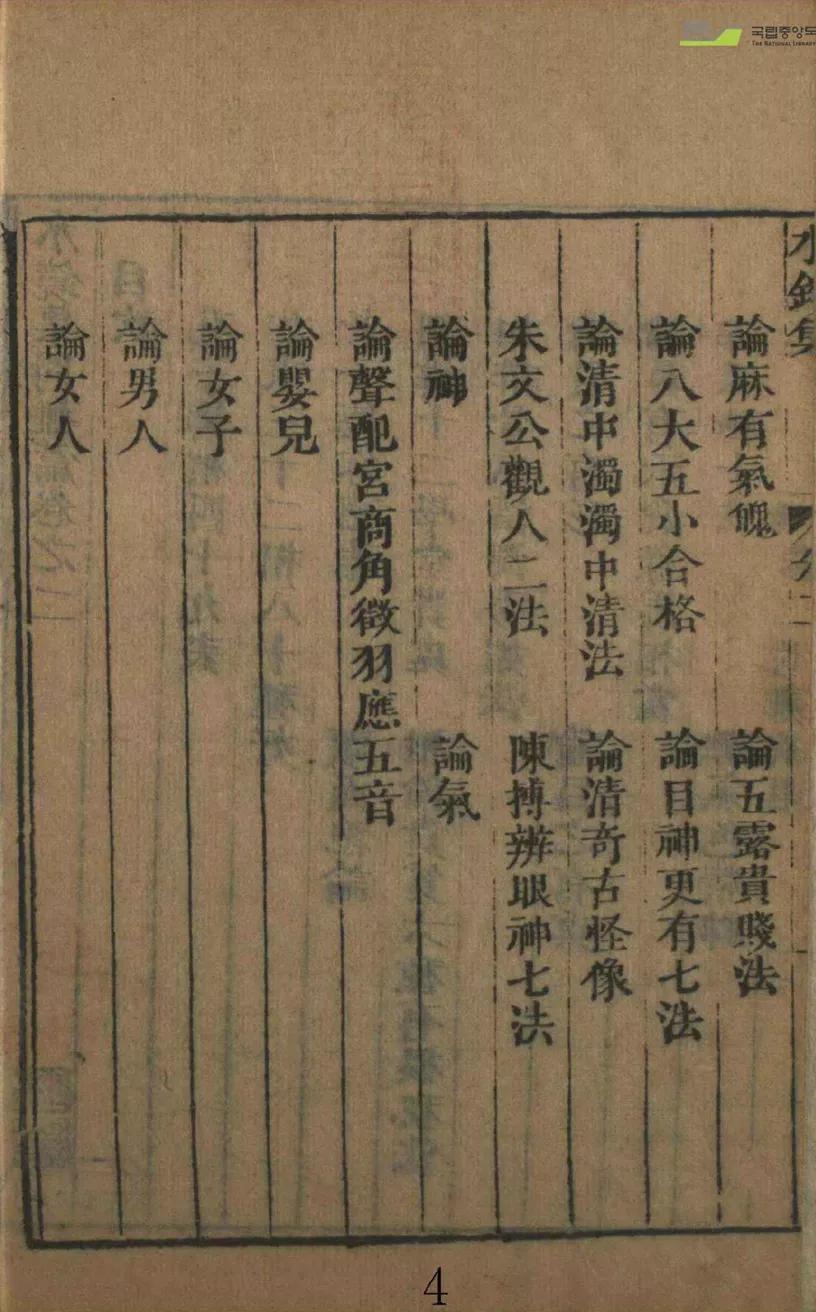 국립중앙도
THE NATIONAL LIBRARY
水鏡集
論麻有氣魄
論五露貴賤法
論八大五小合格
論目神更有七法
論清中濁濁中清法
論清奇古怪像
朱文公觀人二法
陳摶辨眼神七法
論神
論氣
論聲配宮商角徵羽應五音
論嬰兒
論女子
論男人
論女人
4